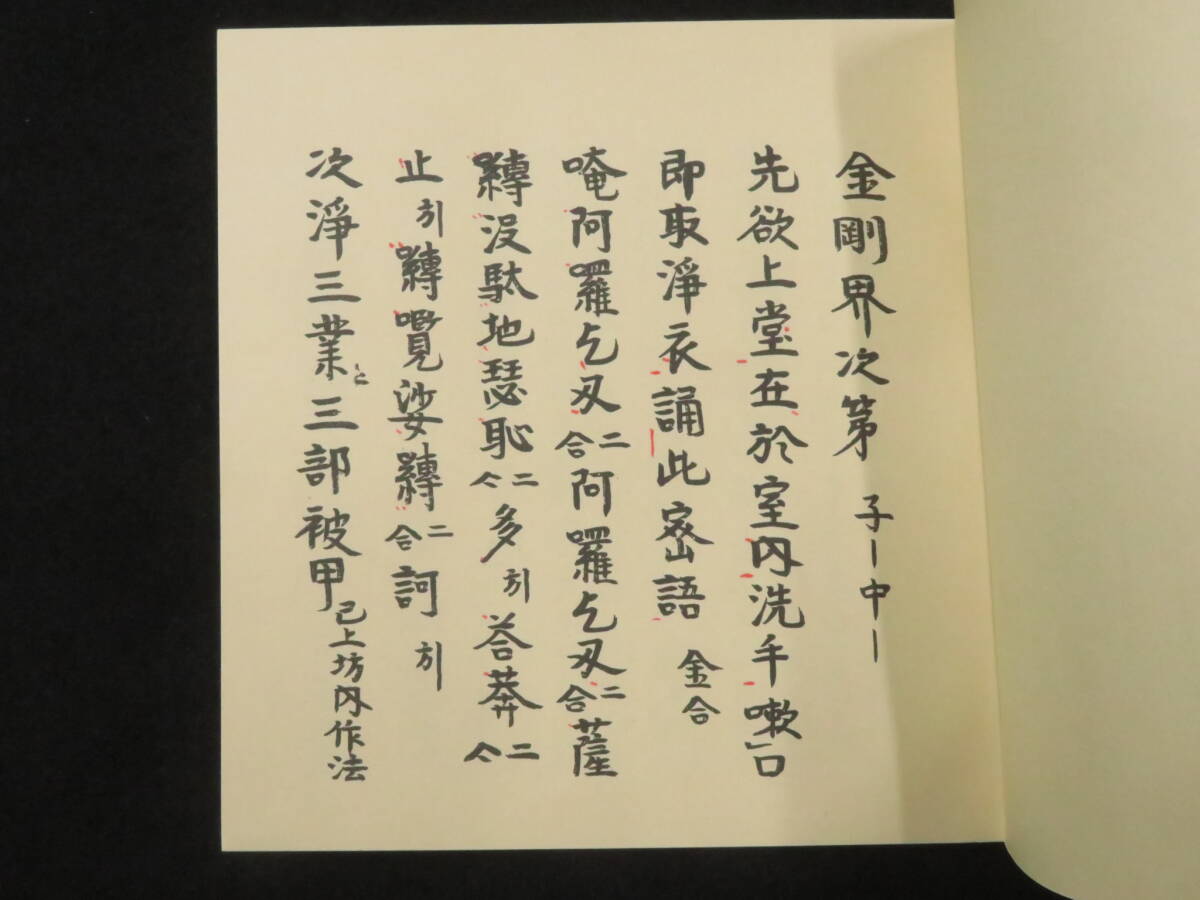 金剛界次第 子ー中ー
先欲上堂在於室内洗手嗽口
即取淨衣誦此密語 金合
唵阿囉乞叉二合阿囉乞叉二合薩
嚩没馱地瑟恥二合多引荅莽二合
止引嚩囕娑嚩二合訶引
次淨三業と三部被甲已上坊内作法